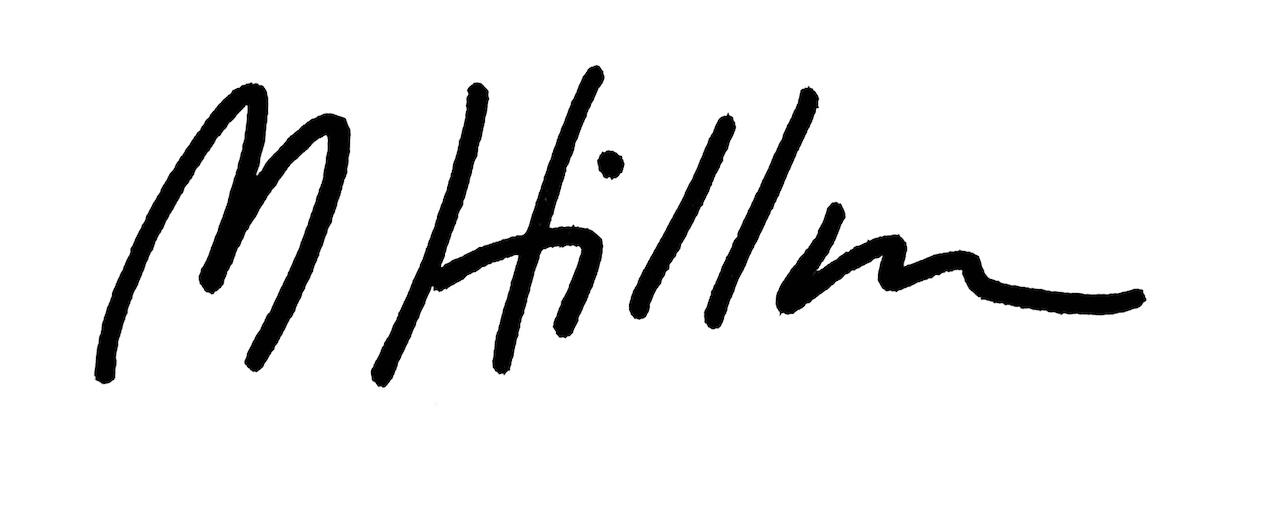 M Hillm